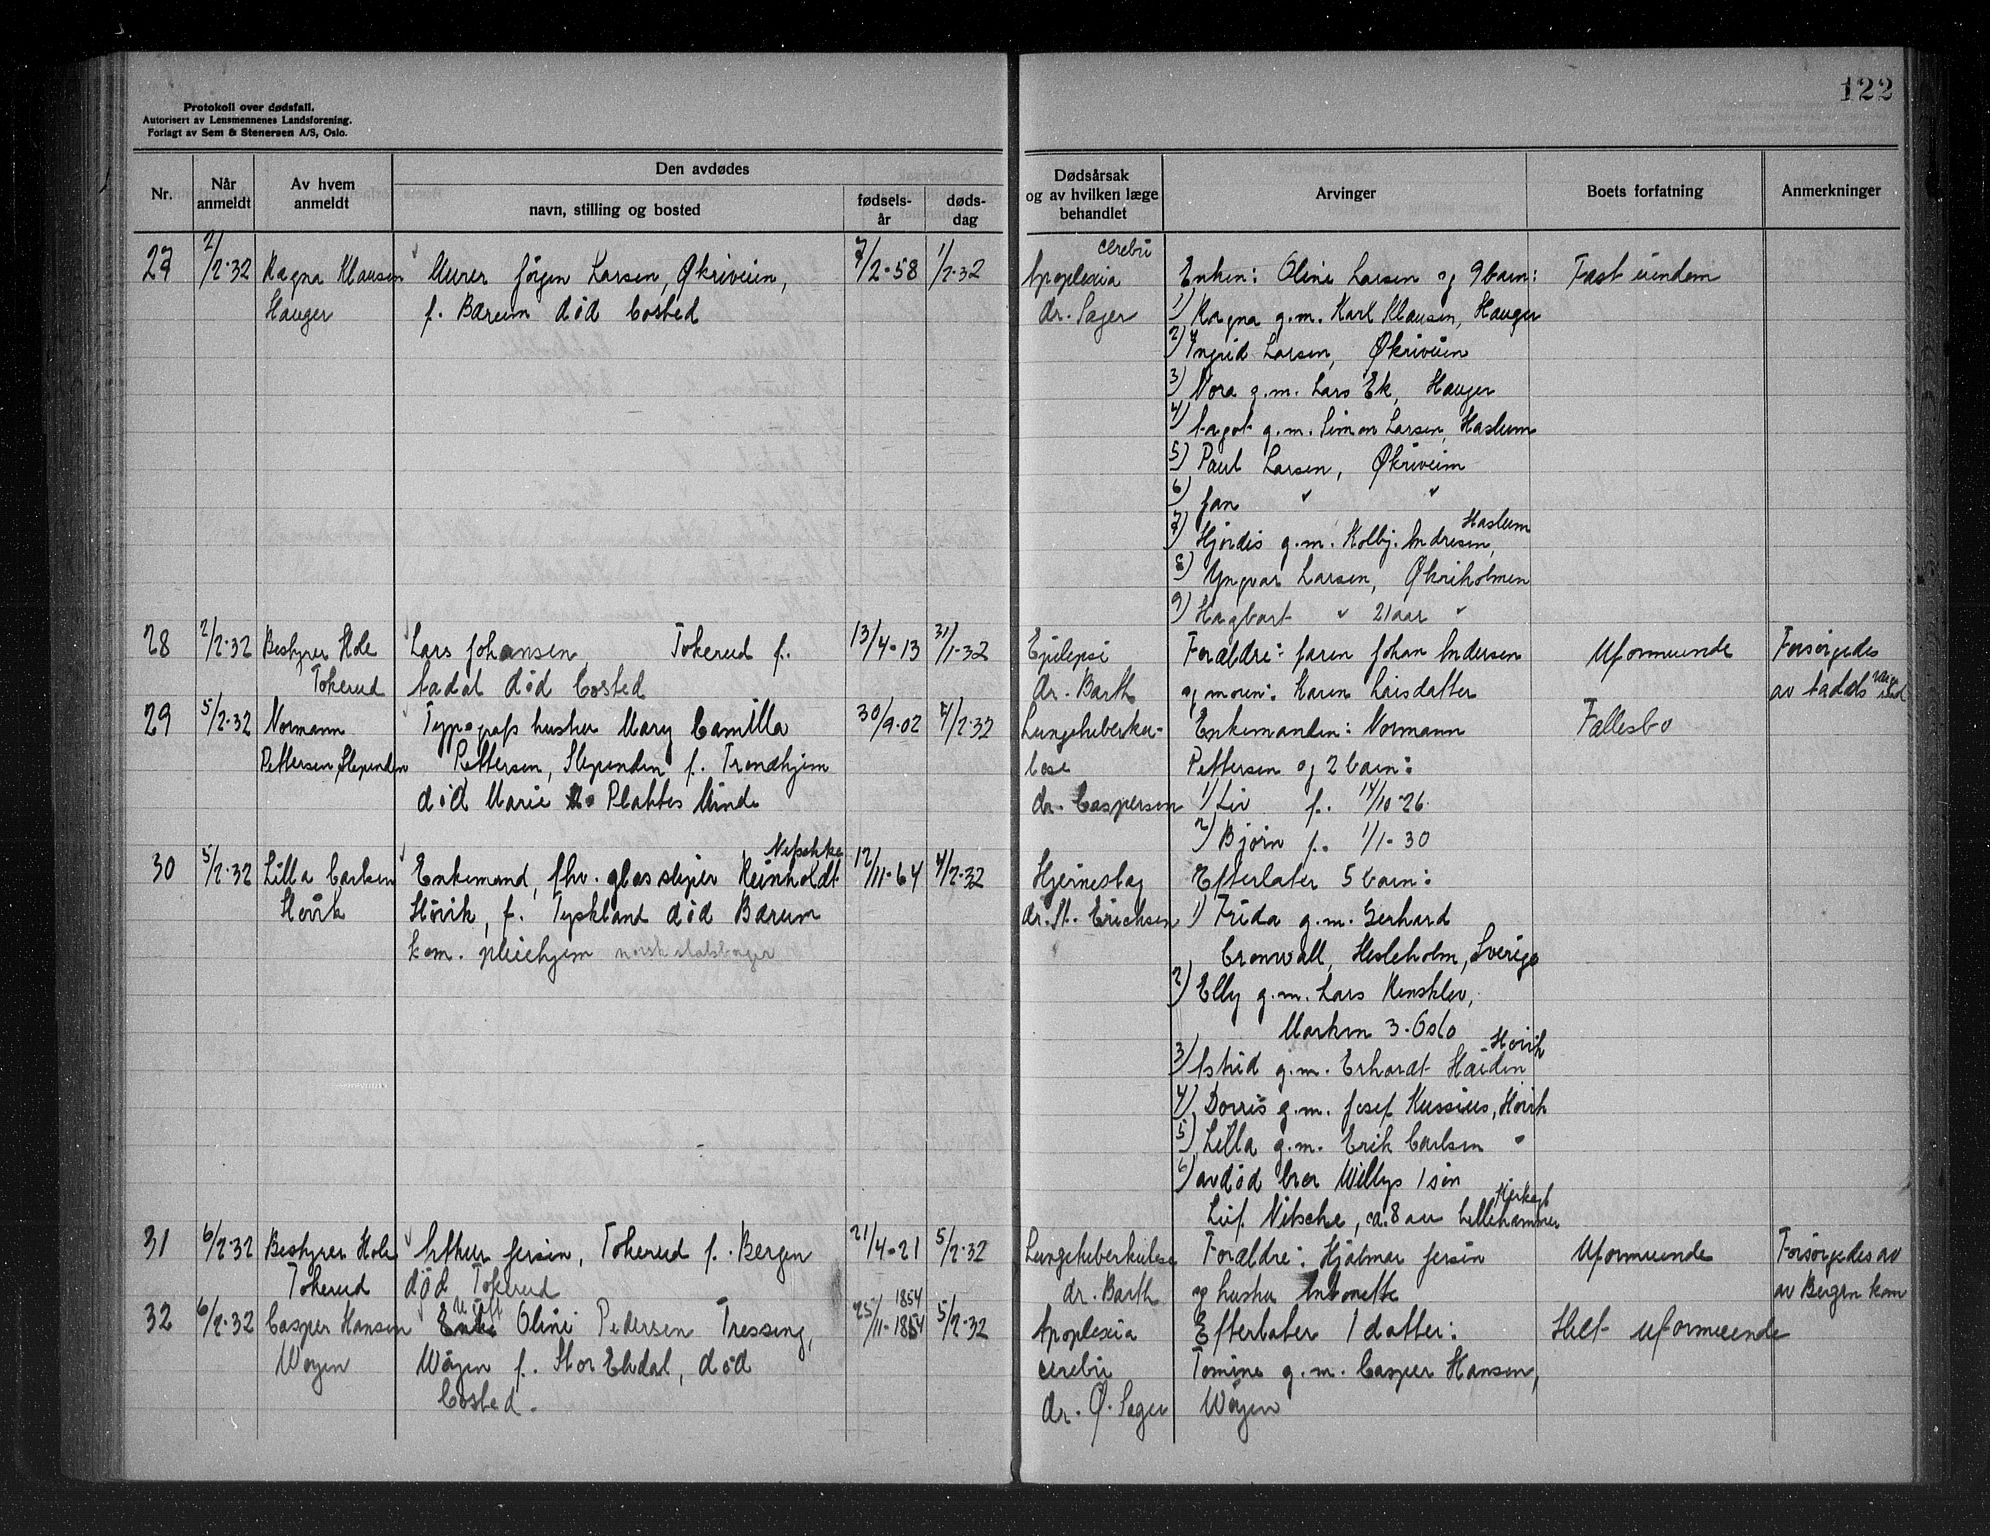 122
Protokoll over dødsfall.
Autorisert av Lensmennenes Landsforening.
Forlagt av Sem & Stenersen A/S, Oslo.
Nr.
Når anmeldt
Av hvem anmeldt
Den avdødes
navn, stilling og bosted
fødselsår
dødsdag
Dødsårsak og av hvilken læge behandlet
Arvinger
Boets forfatning
Anmerkninger
27
2/2-32
Ragna Klausen
Hauger
Murer Jörgen Larsen, Økriveien,
f. Bærum död bosted
7/2-58
1/2-32
Apoplexia cerebri
dr. Sager
Enken: Oline Larsen og 9 barn:
1) Ragna g.m. Karl Klausen, Hauger
2) Yngrid Larsen, Økriveien
3) Nora g.m. Lars Ek, Hauger
4) Aagot g.m. Simon Larsen, Haslum
5) Paul Larsen, Økriveien
6) Jan " "
7) Hjördis g.m. Kolbj. Andresen, Haslum
8) Yngvar Larsen, Økriholmen
9) Hagbart " 21 aar "
Fast eiendom
28
2/2-32
Bestyrer Hole
Tokerud
Lars Johansen, Tokerud f.
Aadal död bosted
13/4-13
31/1-32
Epilepsi
dr. Barth
Forældre: faren Johan Andersen
og moren: Karen Larsdatter
Uformuende
Forsørgedes
av Aadals
29
5/2-32
Normann
Pettersen, Slependen
Typografs hustru Mary Camilla
Pettersen, Slependen f. Trondhjem
död Marie Plahtes Minde
30/9-02
5/2-32
Lungetuberku-
lose
dr. Caspersen
Enkemanden: Normann
Pettersen og 2 barn:
1) Liv f. 14/10-26
2) Björn f. 1/1-30
Fællesbo
30
5/2-32
Lilla Carlsen
Hövik
Enkemand, fhv. glassliper Reinholdt
Hövik, f. Tyskland död Bærum
kom. pleiehjem norsk statsborger
12/11-64
4/2-32
Hjerneslag
dr. St. Erichsen
Efterlater 5 barn:
1) Frida g.m. Gerhard
Cronwall, Hesleholm, Sverige
2) Elly g.m. Lars Rensklev,
Marken 3. Oslo
3) Astrid g.m. Erhardt Haiden Hövik
4) Dorris g.m. Josef Kussius, Hövik
5) Lilla g.m. Erik Carlsen "
6) avdöd bror Willys 1 sön
Leif Nitsche, ca. 8 aar Lillehammer
31
6/2-32
Bestyrer Hole
Tokerud
Arthur Jersin, Tokerud f. Bergen
död Tokerud
21/4-21
5/2-32
Lungetuberkulose
dr. Barth
Forældre: Hjalmar Jersin
og hustru Antonette
Uformuende
Forsørgedes av
av Bergen kom
32
6/2-32
Casper Hansen
Wöyen
Enke Oline Pedersen Tressing,
Wöyen f. Stor Elvdal, död
bosted.
25/11-1854
1854
5/2-32
Apoplexia
cerebri
dr. Ø. Sager
Efterlater 1 datter:
Tomine g.m. Casper Hansen,
Wöyen
Helt uformuende